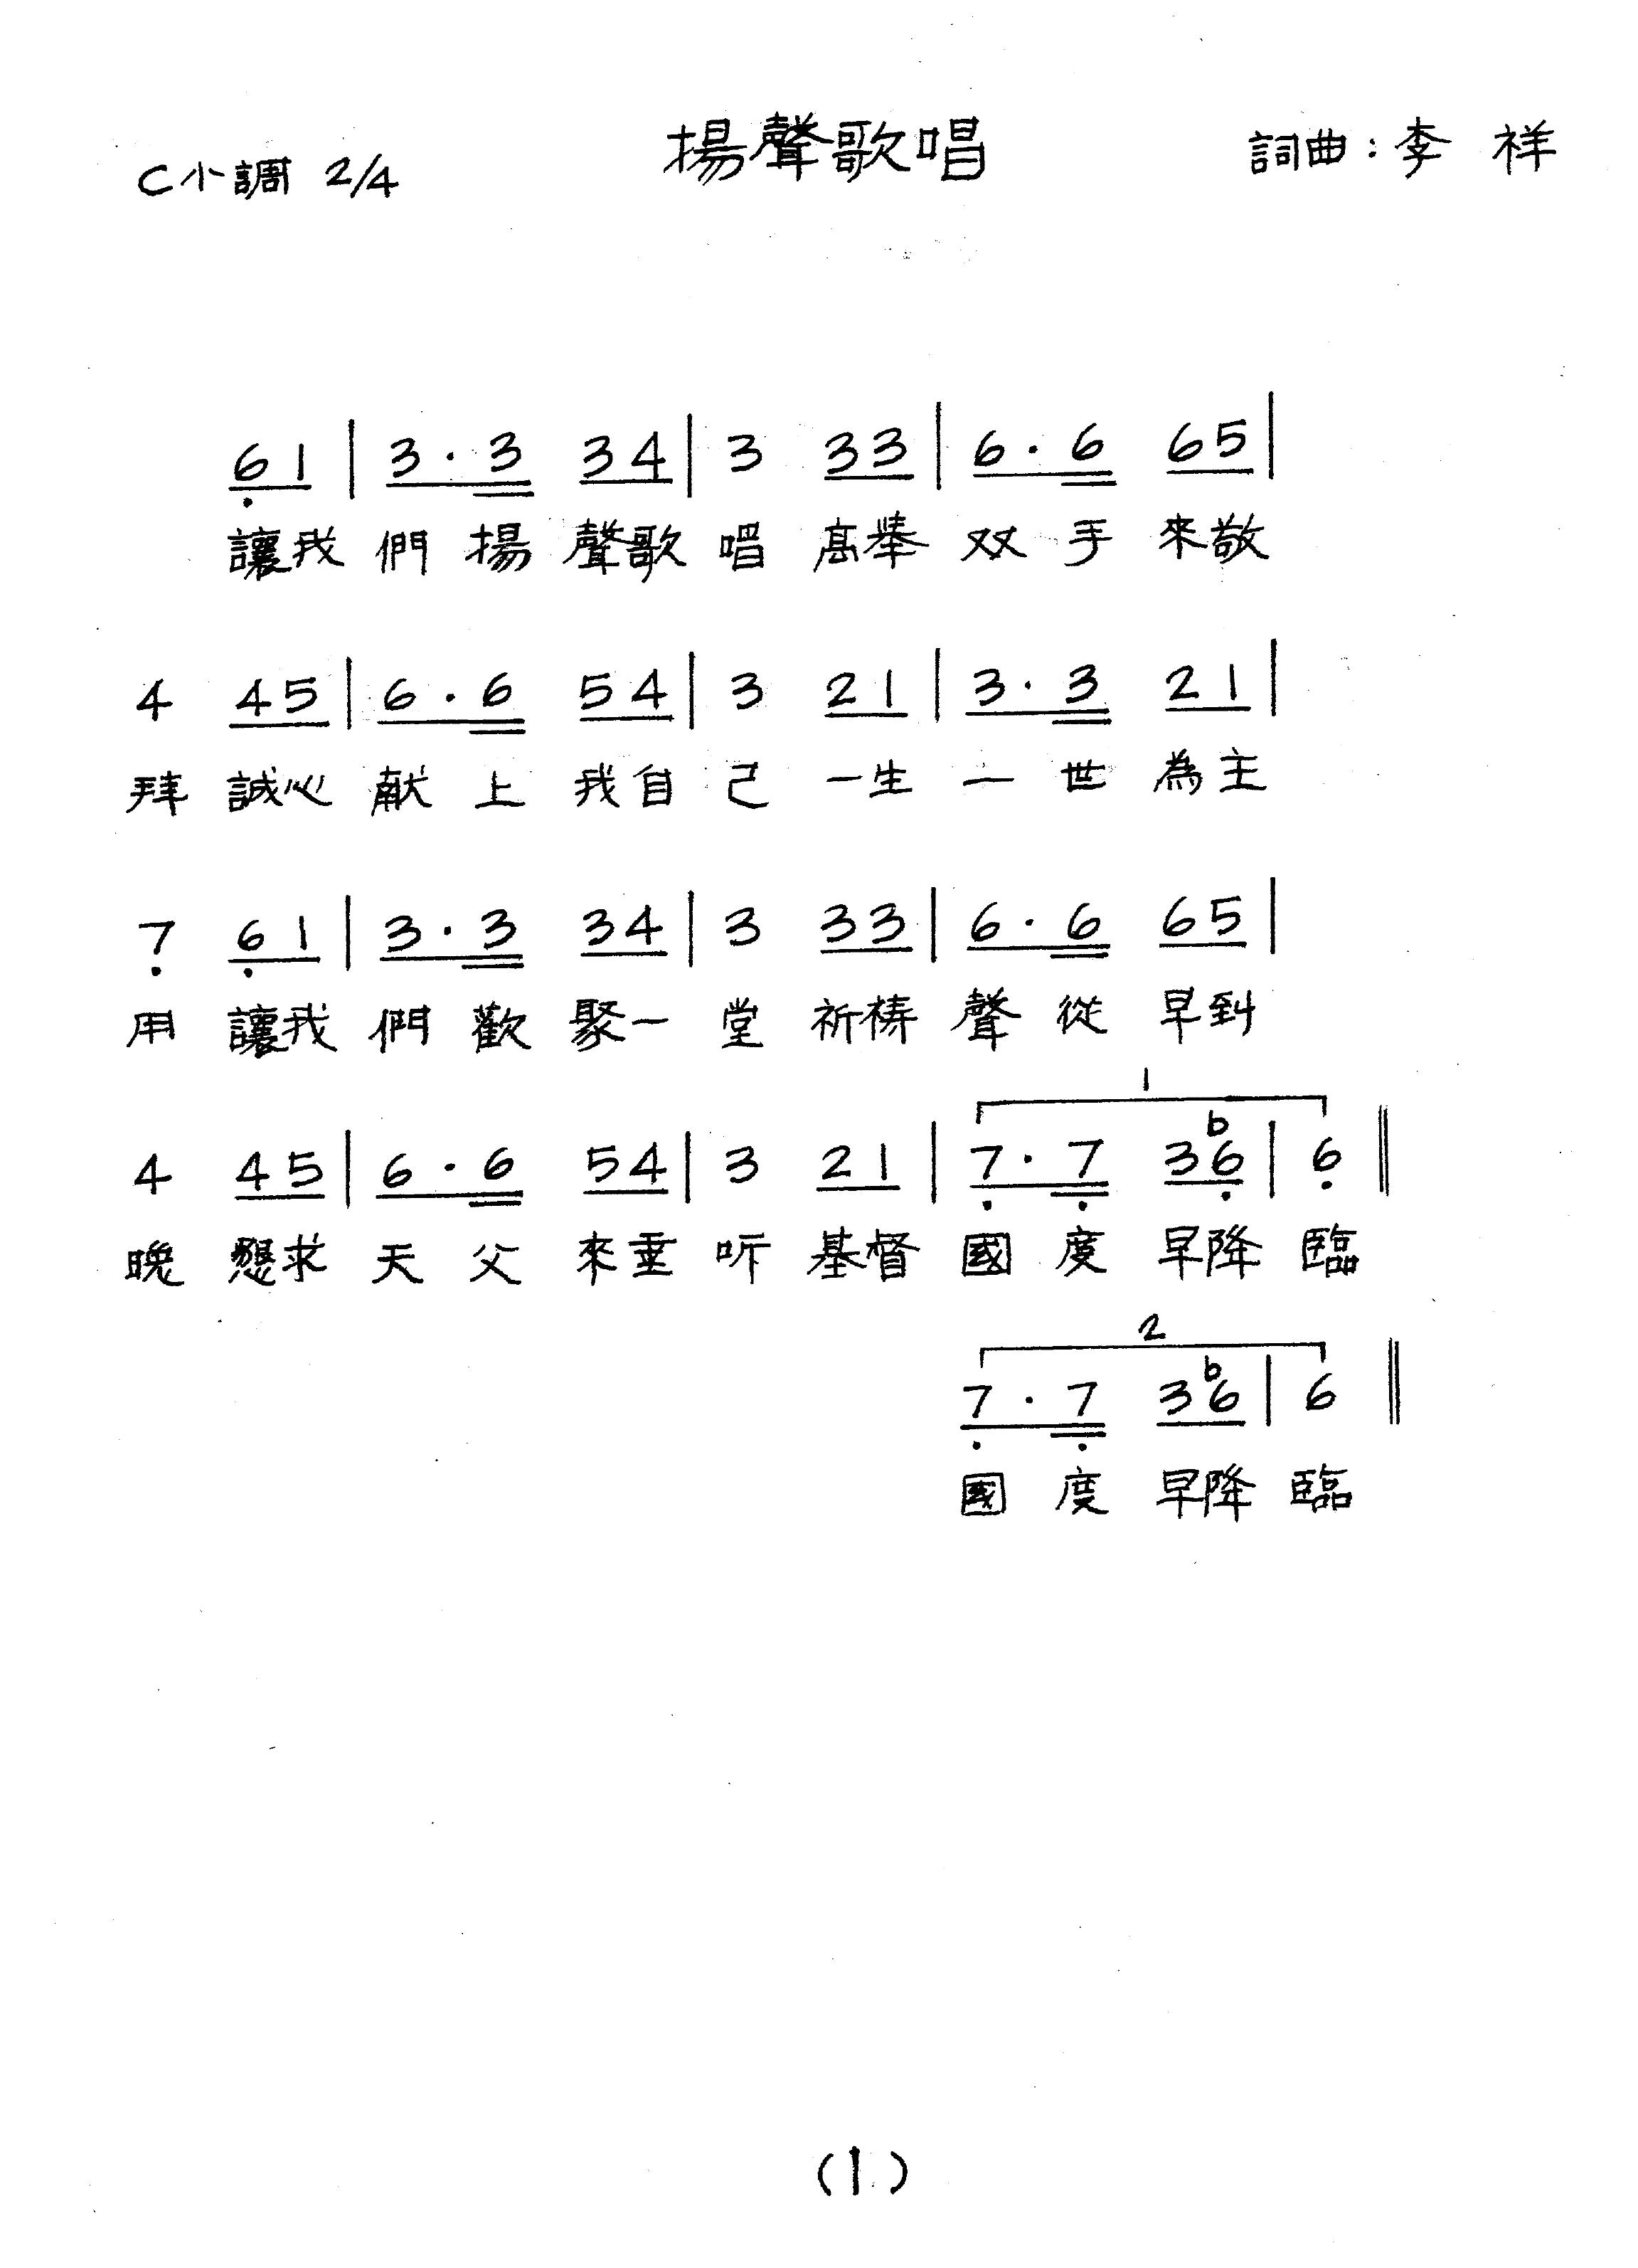 C小調 2/4 揚聲歌唱 詞曲：李 祥
6̣1 | 3·3 34 | 3 33 | 6·6 65 |
讓我 們 揚 聲歌 唱 高舉 双 手 來敬
4 45 | 6·6 54 | 3 21 | 3·3 21 |
拜 誠心 献 上 我自 己 一生 一 世 為主
7̣ 6̣1 | 3·3 34 | 3 33 | 6·6 65 |
用 讓我 們 歡 聚一 堂 祈禱 聲 從 早到
1
4 45 | 6·6 54 | 3 21 | 7̣·7̣ 3♭6̣ | 6̣ ‖
晚 懇求 天 父 來垂 听 基督 國 度 早降 臨
2
7̣·7̣ 3♭6 | 6 ‖
國 度 早降 臨
(1)